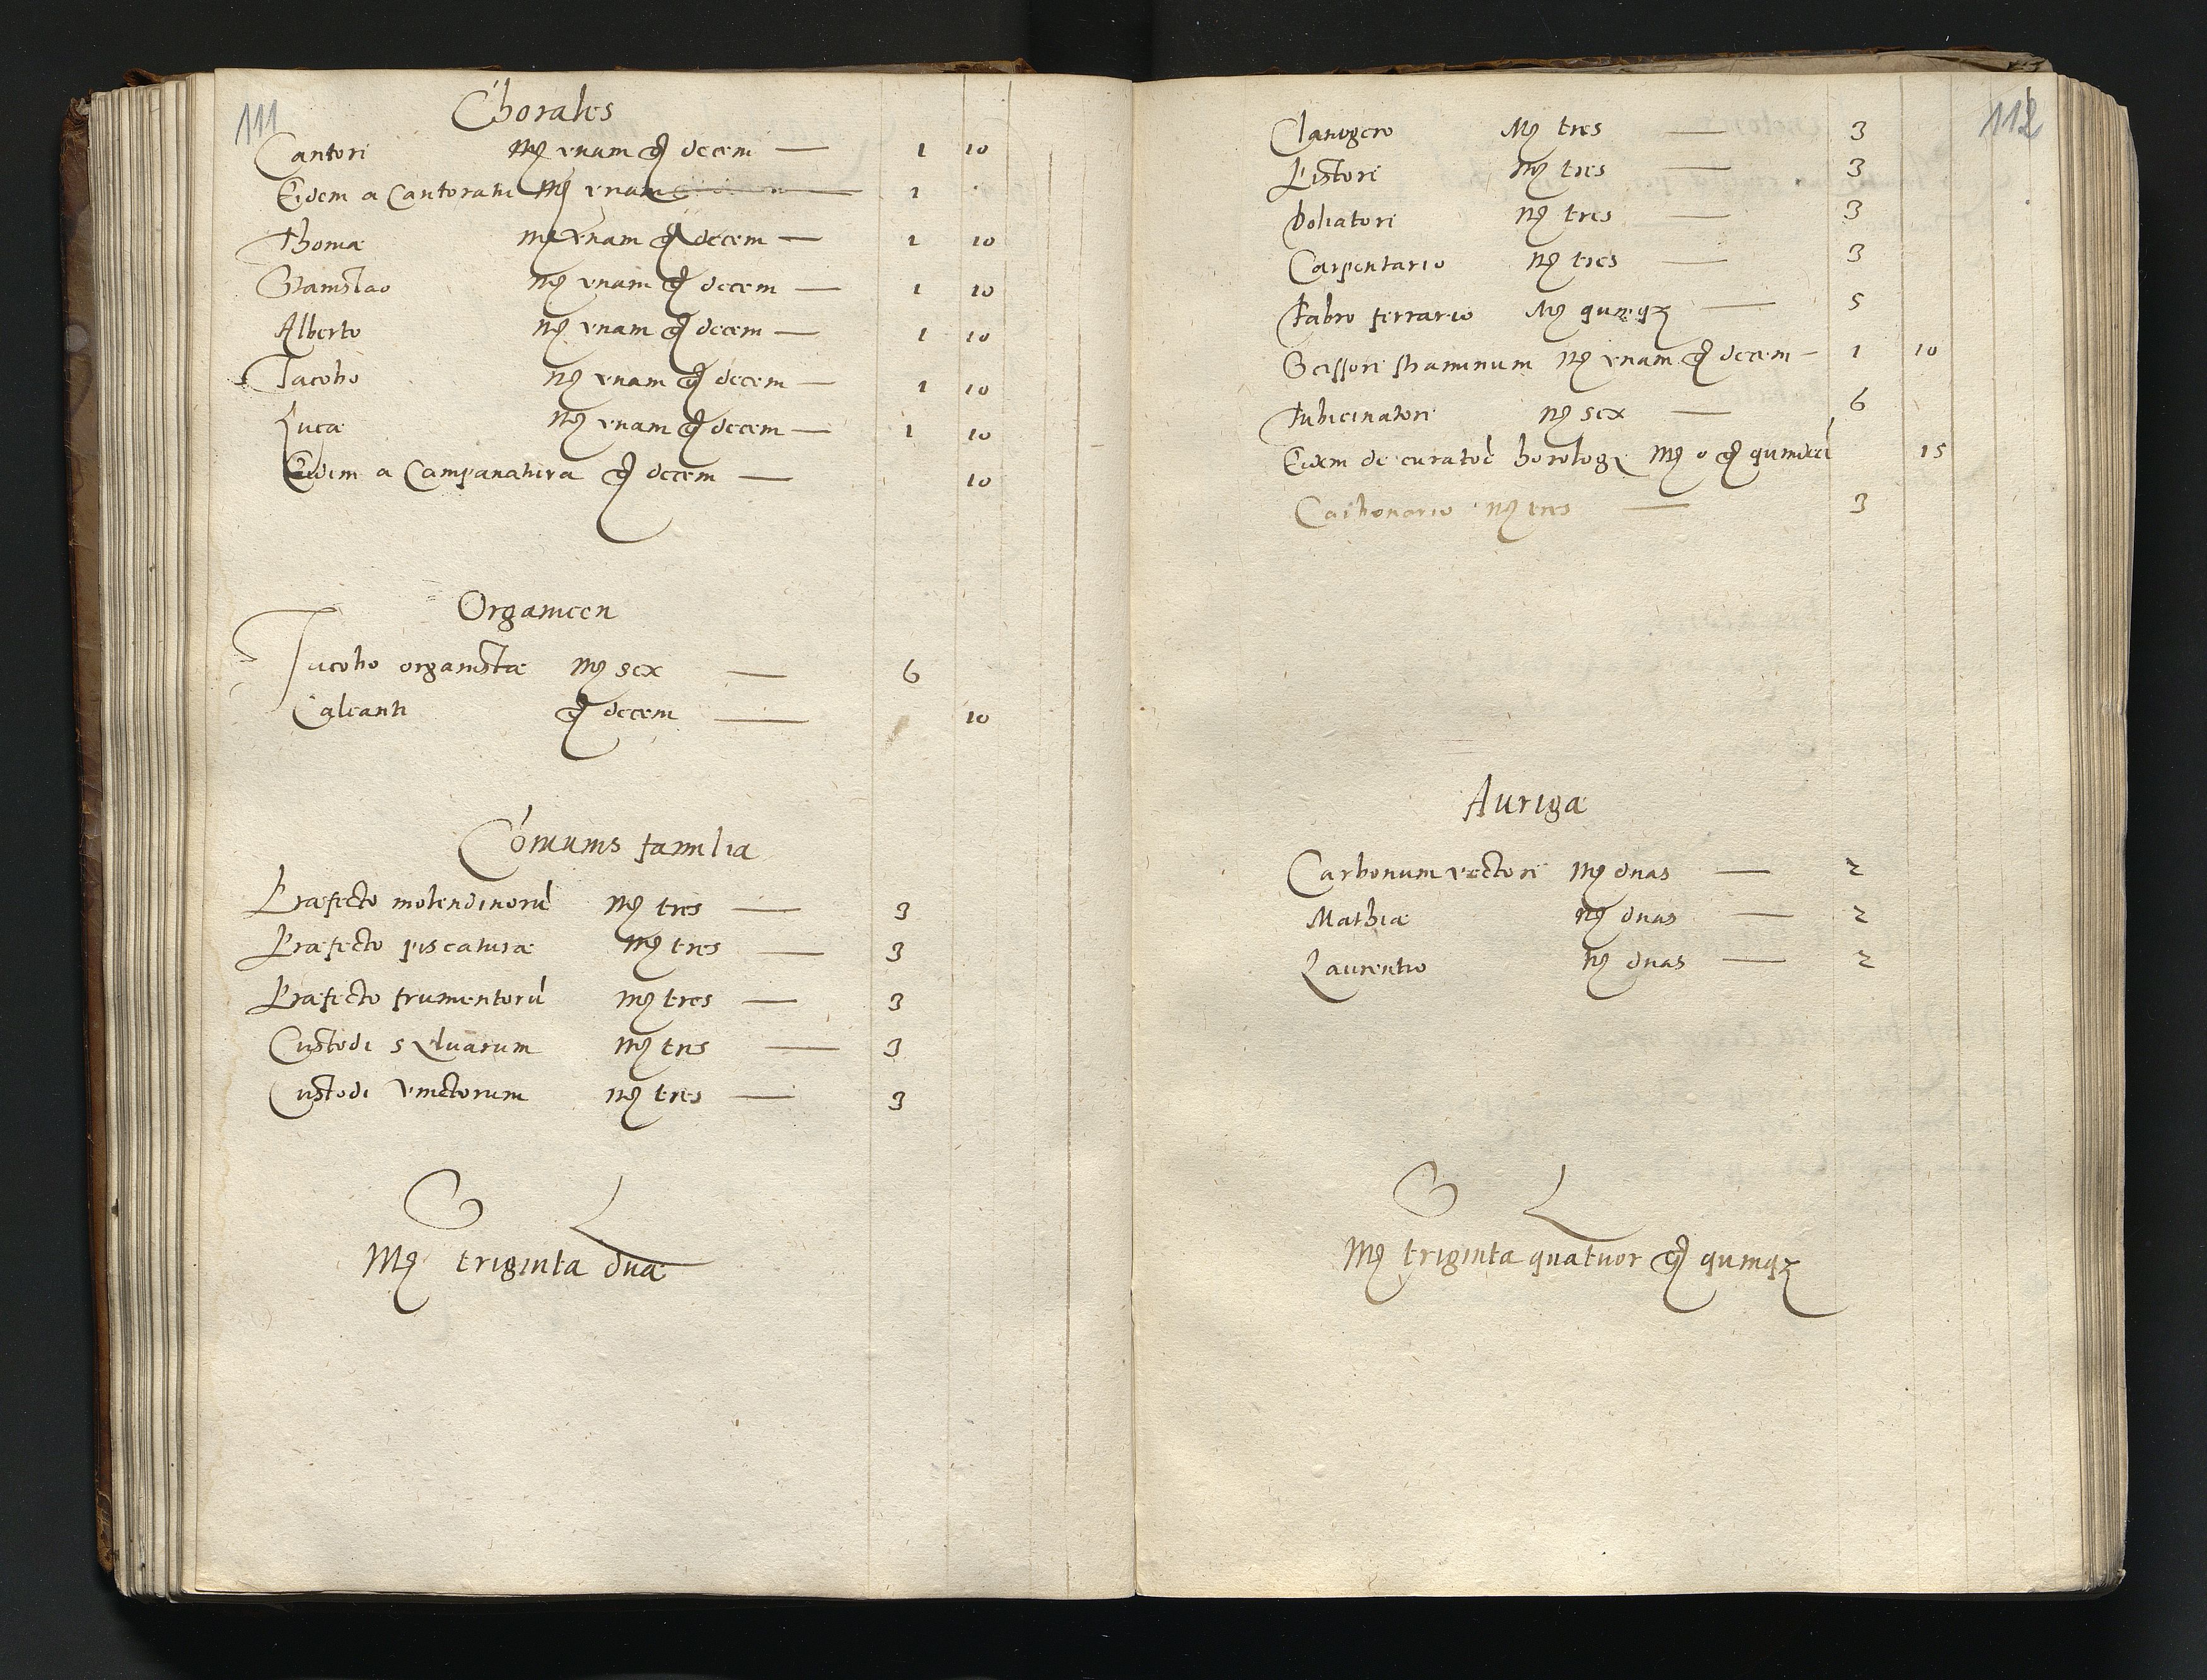 111
Chorales
Cantori Mꝶ vnam gꝶ decem — 1 10
Eidem a Cantoratu Mꝶ vnam — 1
Thomæ Mꝶ vnam gꝶ decem — 1 10
Stanislao Mꝶ vnam gꝶ decem — 1 10
Alberto Mꝶ vnam gꝶ decem — 1 10
Jacobo Mꝶ vnam gꝶ decem — 1 10
Lucæ Mꝶ vnam gꝶ decem — 1 10
Eidem a Campanatura gꝶ decem — 10
Organicen
Jacobo organistæ Mꝶ sex — 6
Calcanti gꝶ decem — 10
Cōmunis familia
Præfecto molendinorū Mꝶ tres — 3
Præfecto piscaturæ Mꝶ tres — 3
Præfecto frumentorū Mꝶ tres — 3
Custodi sylvarum Mꝶ tres — 3
Custodi vinctorum Mꝶ tres — 3
S L
Mꝶ triginta duæ
112
Clauigero Mꝶ tres — 3
Pistori Mꝶ tres — 3
Doliatori Mꝶ tres — 3
Carpentario Mꝶ tres — 3
Fabro ferrario Mꝶ quinqꝫ — 5
Scissori straminum Mꝶ vnam gꝶ decem — 1 10
Tubicinatori Mꝶ sex — 6
Eidem de curatōe horologꝭ Mꝶ 0 gꝶ quindecī 15
Carbonario Mꝶ tres — 3
Aurigæ
Carbonum vectori Mꝶ duas — 2
Mathiæ Mꝶ duas — 2
Laurentio Mꝶ duas — 2
S L
Mꝶ triginta quatuor gꝶ quinqꝫ